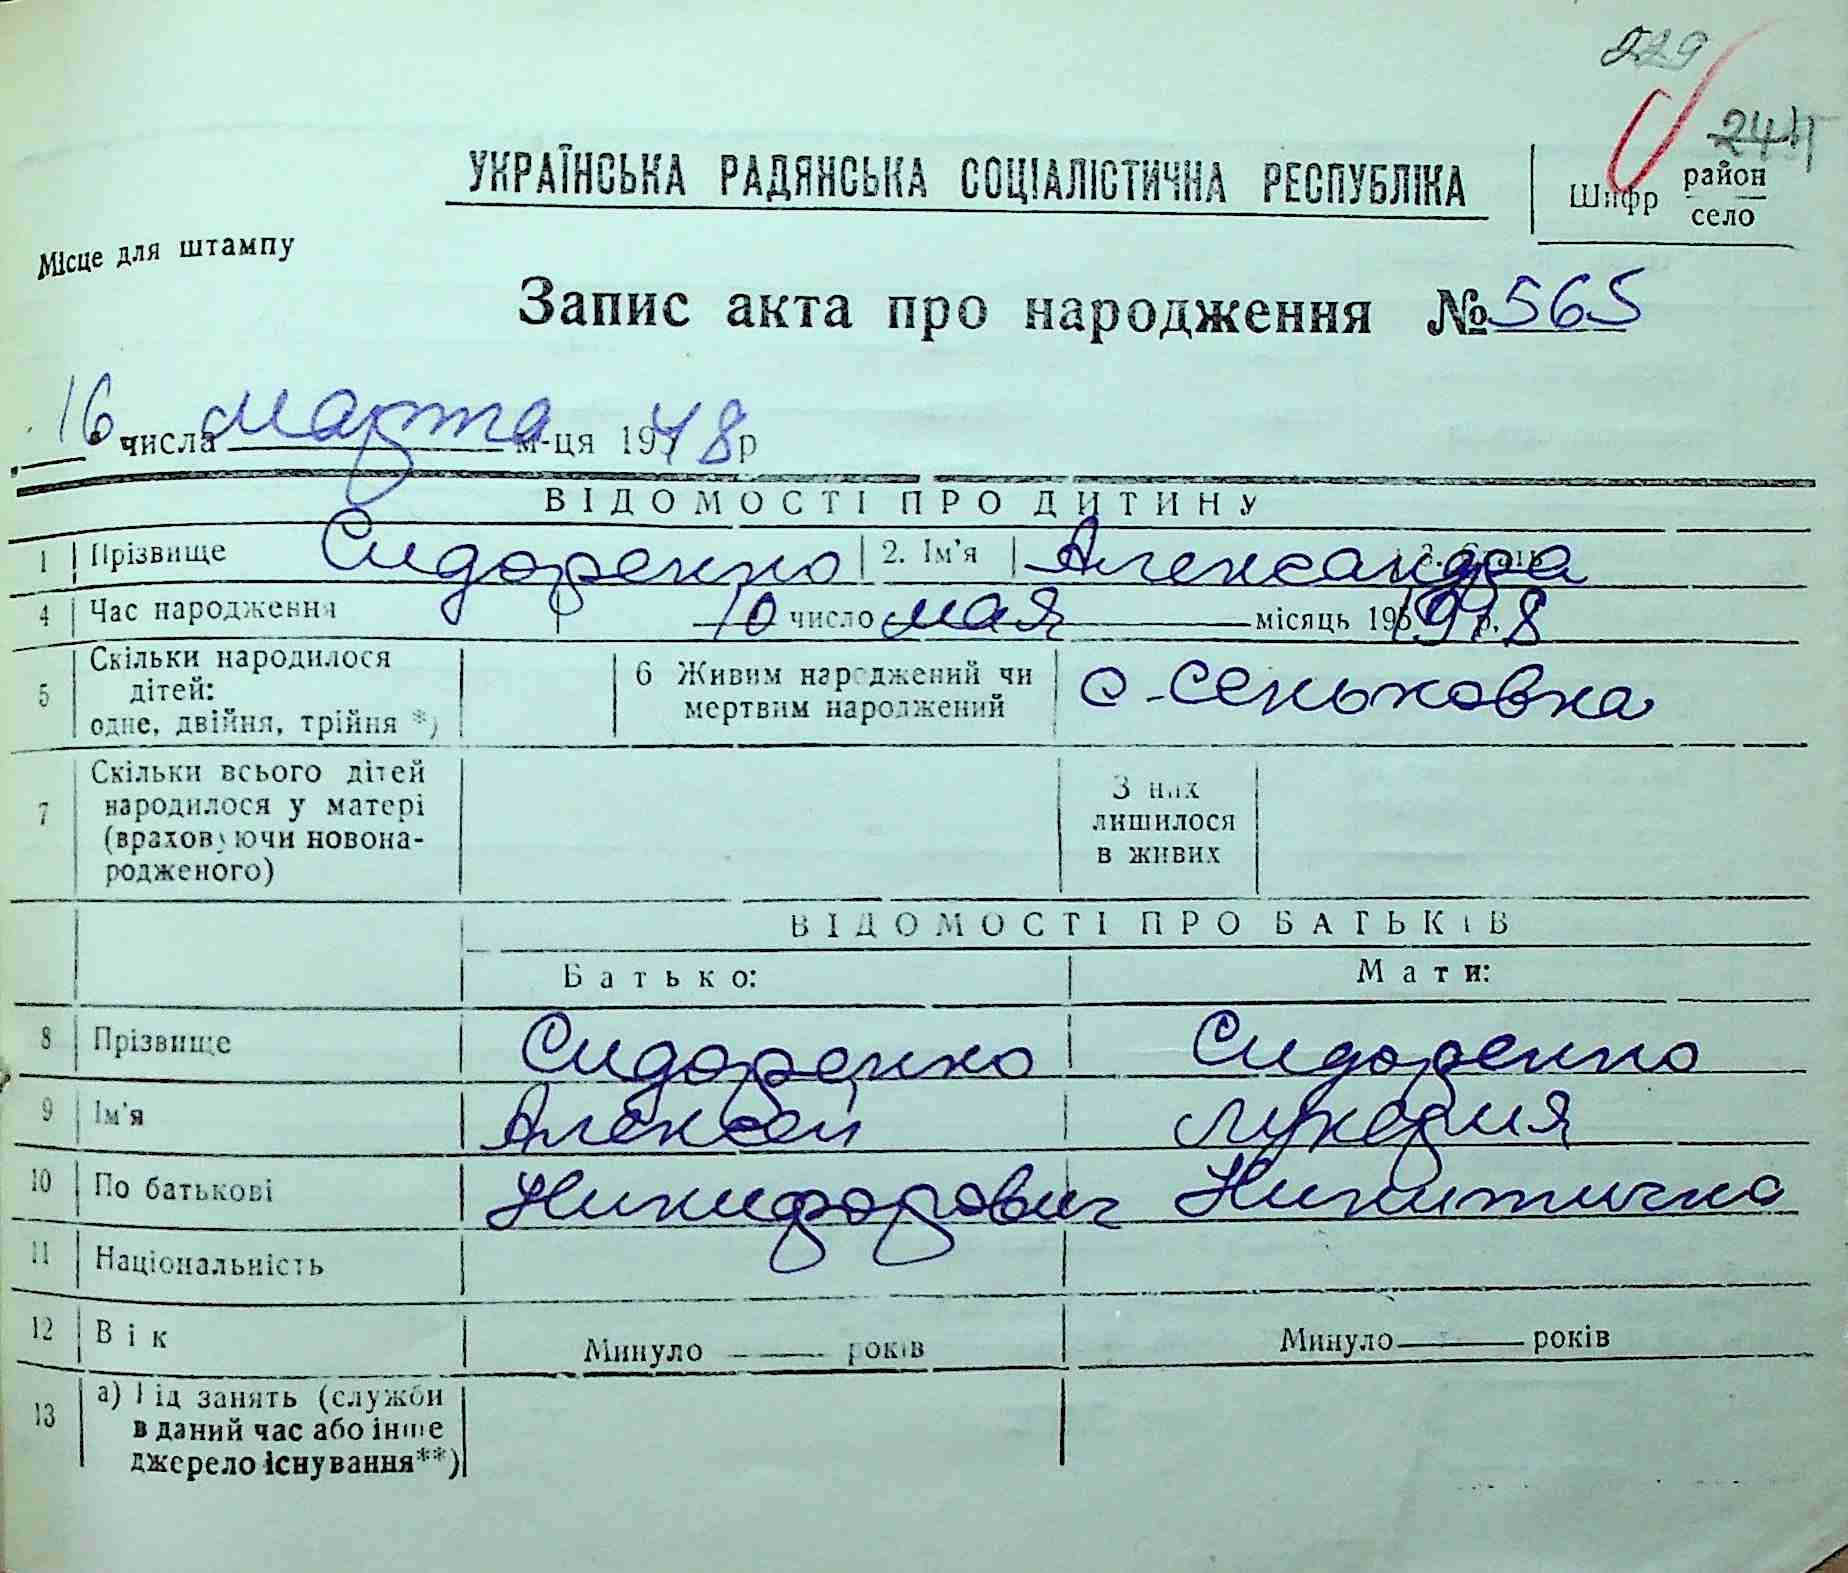 229
2411
УКРАЇНСЬКА РАДЯНСЬКА СОЦІАЛІСТИЧНА РЕСПУБЛІКА
Шифр район село
Місце для штампу
Запис акта про народження № 565
16 числа марта м-ця 1978 р
ВІДОМОСТІ ПРО ДИТИНУ
1 Прізвище Сидоренко 2. Ім'я Александра 3. Стать
4 Час народження 10 число мая місяць 195 1918
5 Скільки народилося дітей: одне, двійня, трійня *) 6 Живим народжений чи мертвим народжений с. Сеньковка
7 Скільки всього дітей народилося у матері (враховуючи новонародженого) З них лишилося в живих
ВІДОМОСТІ ПРО БАТЬКІВ
Батько: Мати:
8 Прізвище Сидоренко Сидоренко
9 Ім'я Алексей Лукерия
10 По батькові Никифорович Никитична
11 Національність
12 Вік Минуло років Минуло років
13 а) Рід занять (служби в даний час або інше джерело існування**)